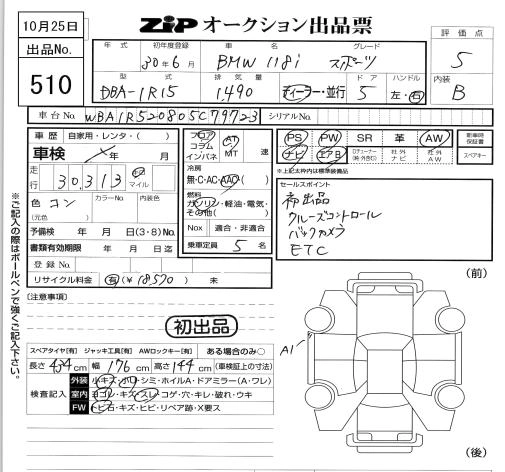 10月25日
ZiP オークション出品票
評価点
出品No.
510
年式 初年度登録 車名 グレード
30年6月 BMW 118i スポーツ
5
型式 排気量 ドア ハンドル
DBA-1R15 1,490 ディーラー・並行 5 左・右
内装
B
車台No. WBA1R520805C79723 シリアルNo.
車歴 自家用・レンタ・( )
車検 年 月
走行 30,313 km マイル
色 コン カラーNo. 内装色
(元色)
予備検 年 月 日(3・8)No.
書類有効期限 年 月 日迄
登録No.
リサイクル料金 有(¥18,570) 未
フロア コラム インパネ AT MT 速
冷房
無・C・AC・AAC
燃料
ガソリン・軽油・電気・
その他( )
Nox 適合・非適合
乗車定員 5 名
PS PW SR 革 AW 新車時保証書
ナビ エアB 社外ナビ 社外AW スペアキー
※上記太枠内は標準装備品
セールスポイント
初出品
クルーズコントロール
バックカメラ
ETC
※ご記入の際はボールペンで強くご記入下さい。
(注意事項)
初出品
スペアタイヤ[有] ジャッキ工具[有] AWロックキー[有] ある場合のみ○
長さ 434 cm 幅 176 cm 高さ 144 cm (車検証上の寸法)
検査記入
外装 小キズ・小凹・シミ・ホイルA・ドアミラー(A・ワレ)
室内 ヨゴレ・キズ・スレ・コゲ・穴・キレ・破れ・ウキ
FW トビ石・キズ・ヒビ・リペア跡・X要ス
(前)
A1
(後)